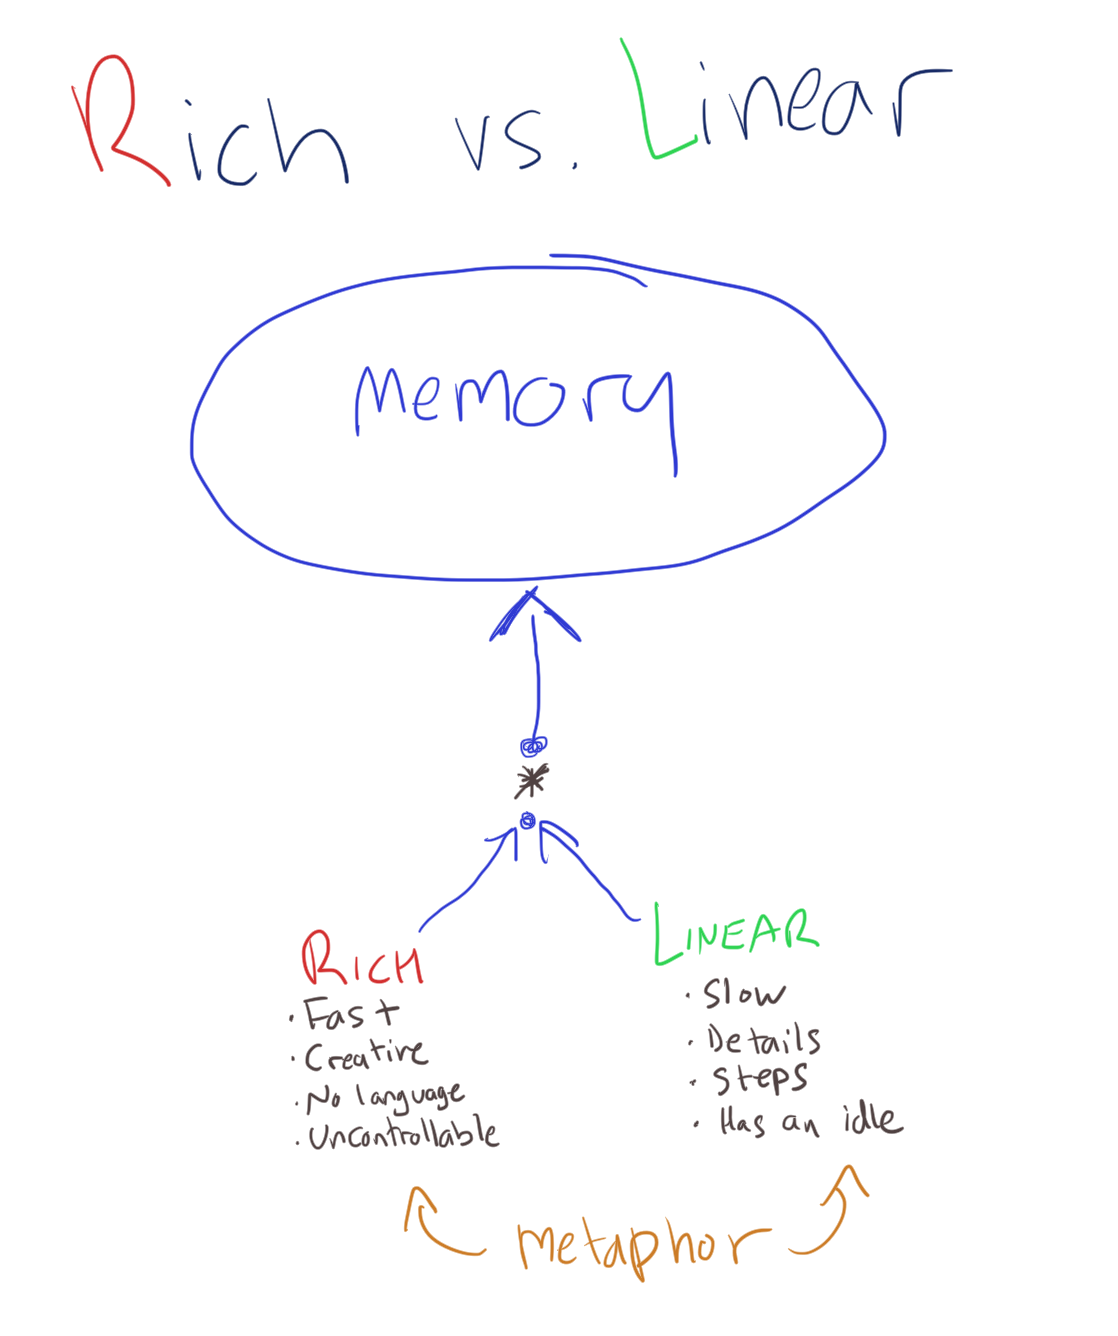 Rich vs. Linear
Memory
*
RICH
· Fast
· Creative
· No language
· Uncontrollable
LINEAR
· Slow
· Details
· Steps
· Has an idle
metaphor